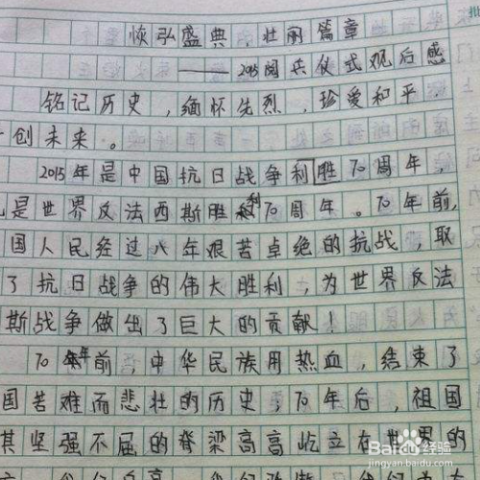 恢弘盛典，壮丽篇章
——2015阅兵仪式观后感
铭记历史，缅怀先烈，珍爱和平，
创未来。
2015年是中国抗日战争利胜70周年，
是世界反法西斯胜利70周年。70年前，
国人民经过八年艰苦卓绝的抗战，取
了抗日战争的伟大胜利，为世界反法
斯战争做出了巨大的贡献！
70年前，中华民族用热血，结束了
国苦难而悲壮的历史，70年后，祖国
其坚强不屈的脊梁高高屹立在世界的
Baidu经验
jingyan.baidu.com
批